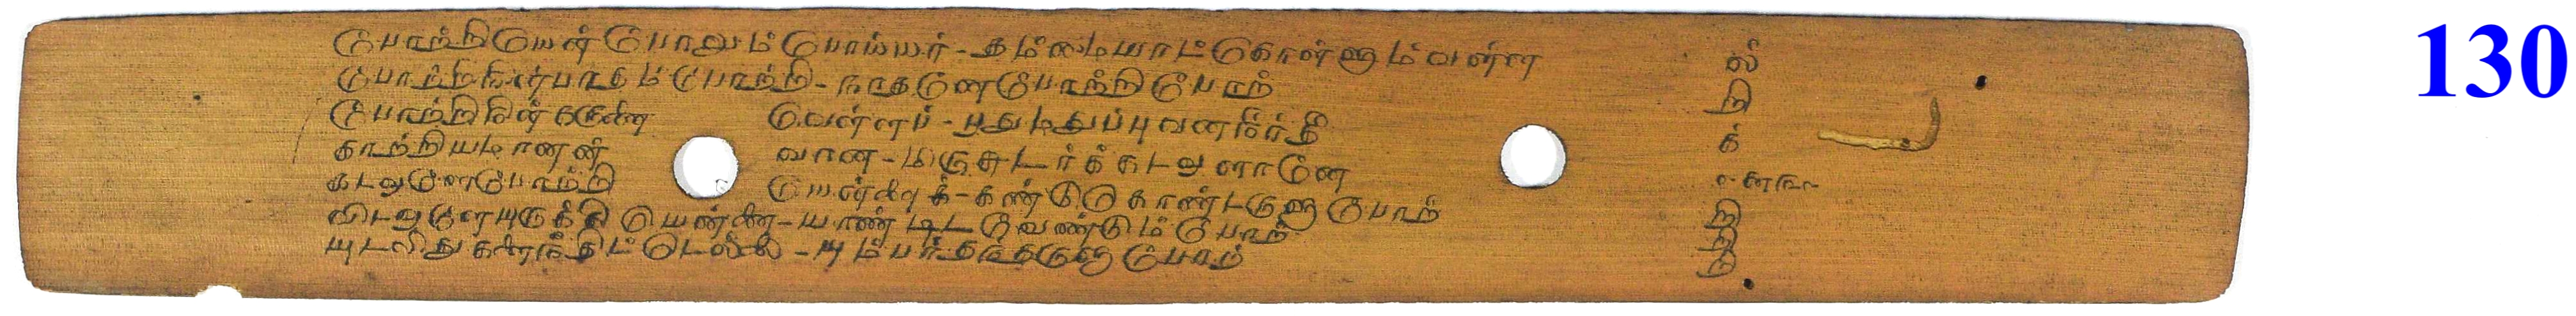 போற்றியென்போலும்பொய்யர் - தம்மையாட்கொள்ளும்வள்ள ல்
போற்றிநின்பாதம்போற்றி - நாதனேபோற்றிபோற் றி
போற்றிநின்கருணை வெள்ளப் - புதுமதுப்புவனநீர்தீ க்
காற்றியமானன் வான - மிருசுடர்க்கடவுளானே
கடவுளேபோற்றி யென்னைக் - கண்டுகொண்டருளுபோற் றி
விடவுளேயுருக்கியென்னை - யாண்டிடவேண்டும்போற் றி
யுடலிதுகளைந்திட்டொல்லை - யும்பர்தந்தருளுபோற் றி